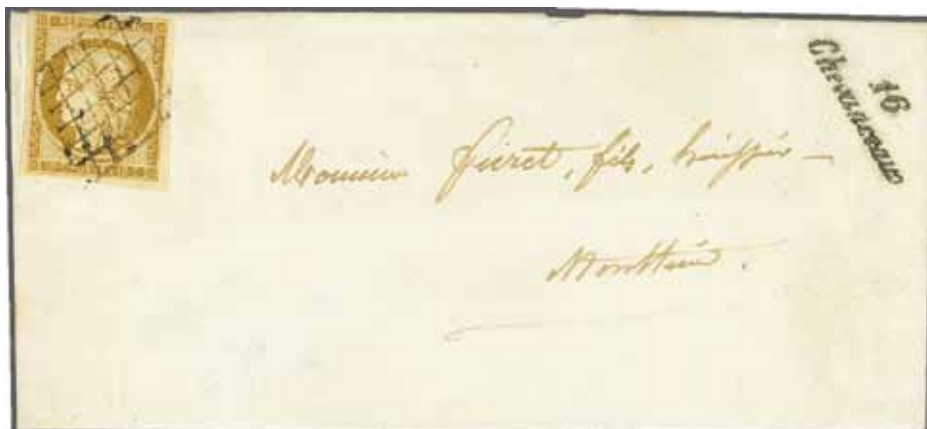 16
Chevanceaux
Monsieur Furet, fils, huissier —
Montlieu.